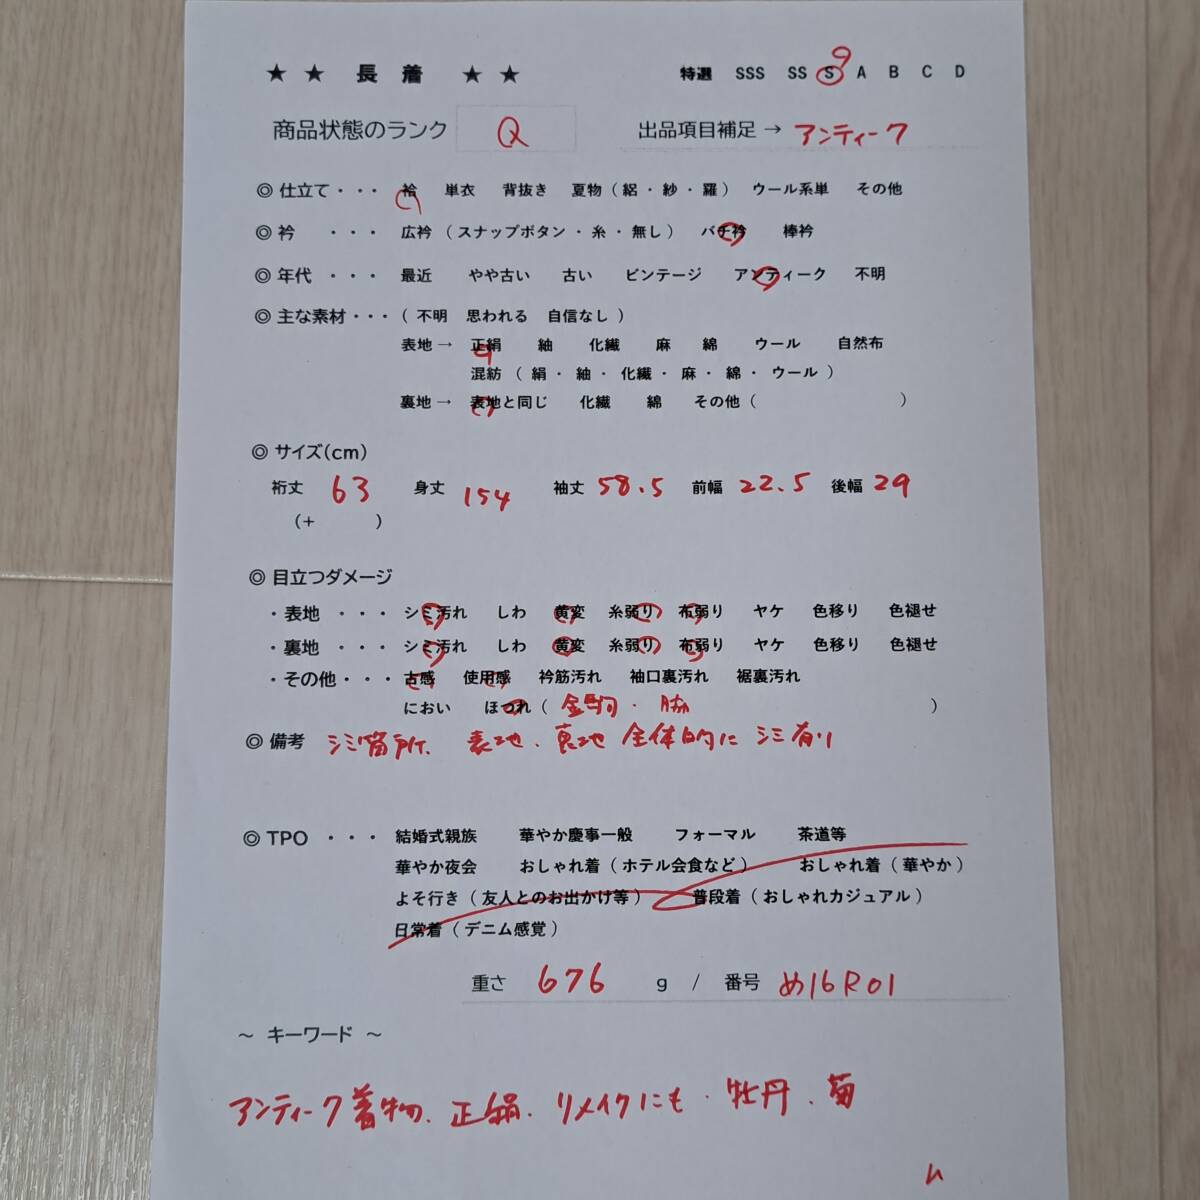 ★ ★ 長 着 ★ ★ 特選 SSS SS S A B C D
商品状態のランク Q 出品項目補足 → アンティーク
◎ 仕立て ・・・ 袷 単衣 背抜き 夏物 ( 絽 ・ 紗 ・ 羅 ) ウール系単 その他
◎ 衿 ・・・ 広衿 ( スナップボタン ・ 糸 ・ 無し ) バチ衿 棒衿
◎ 年代 ・・・ 最近 やや古い 古い ビンテージ アンティーク 不明
◎ 主な素材 ・・・ ( 不明 思われる 自信なし )
表地 → 正絹 紬 化繊 麻 綿 ウール 自然布
混紡 ( 絹 ・ 紬 ・ 化繊 ・ 麻 ・ 綿 ・ ウール )
裏地 → 表地と同じ 化繊 綿 その他 ( )
◎ サイズ(cm)
裄丈 63 身丈 154 袖丈 58.5 前幅 22.5 後幅 29
(+ )
◎ 目立つダメージ
・ 表地 ・・・ シミ汚れ しわ 黄変 糸弱り 布弱り ヤケ 色移り 色褪せ
・ 裏地 ・・・ シミ汚れ しわ 黄変 糸弱り 布弱り ヤケ 色移り 色褪せ
・ その他 ・・・ 古感 使用感 衿筋汚れ 袖口裏汚れ 裾裏汚れ
におい ほつれ ( 金駒 ・ 脇 )
◎ 備考 シミ箇所、表地、裏地 全体的に シミ有り
◎ TPO ・・・ 結婚式親族 華やか慶事一般 フォーマル 茶道等
華やか夜会 おしゃれ着 ( ホテル会食など ) おしゃれ着 ( 華やか )
よそ行き ( 友人とのお出かけ等 ) 普段着 ( おしゃれカジュアル )
日常着 ( デニム感覚 )
重さ 676 g / 番号 め16R01
～ キーワード ～
アンティーク着物、正絹、リメイクにも、牡丹、菊